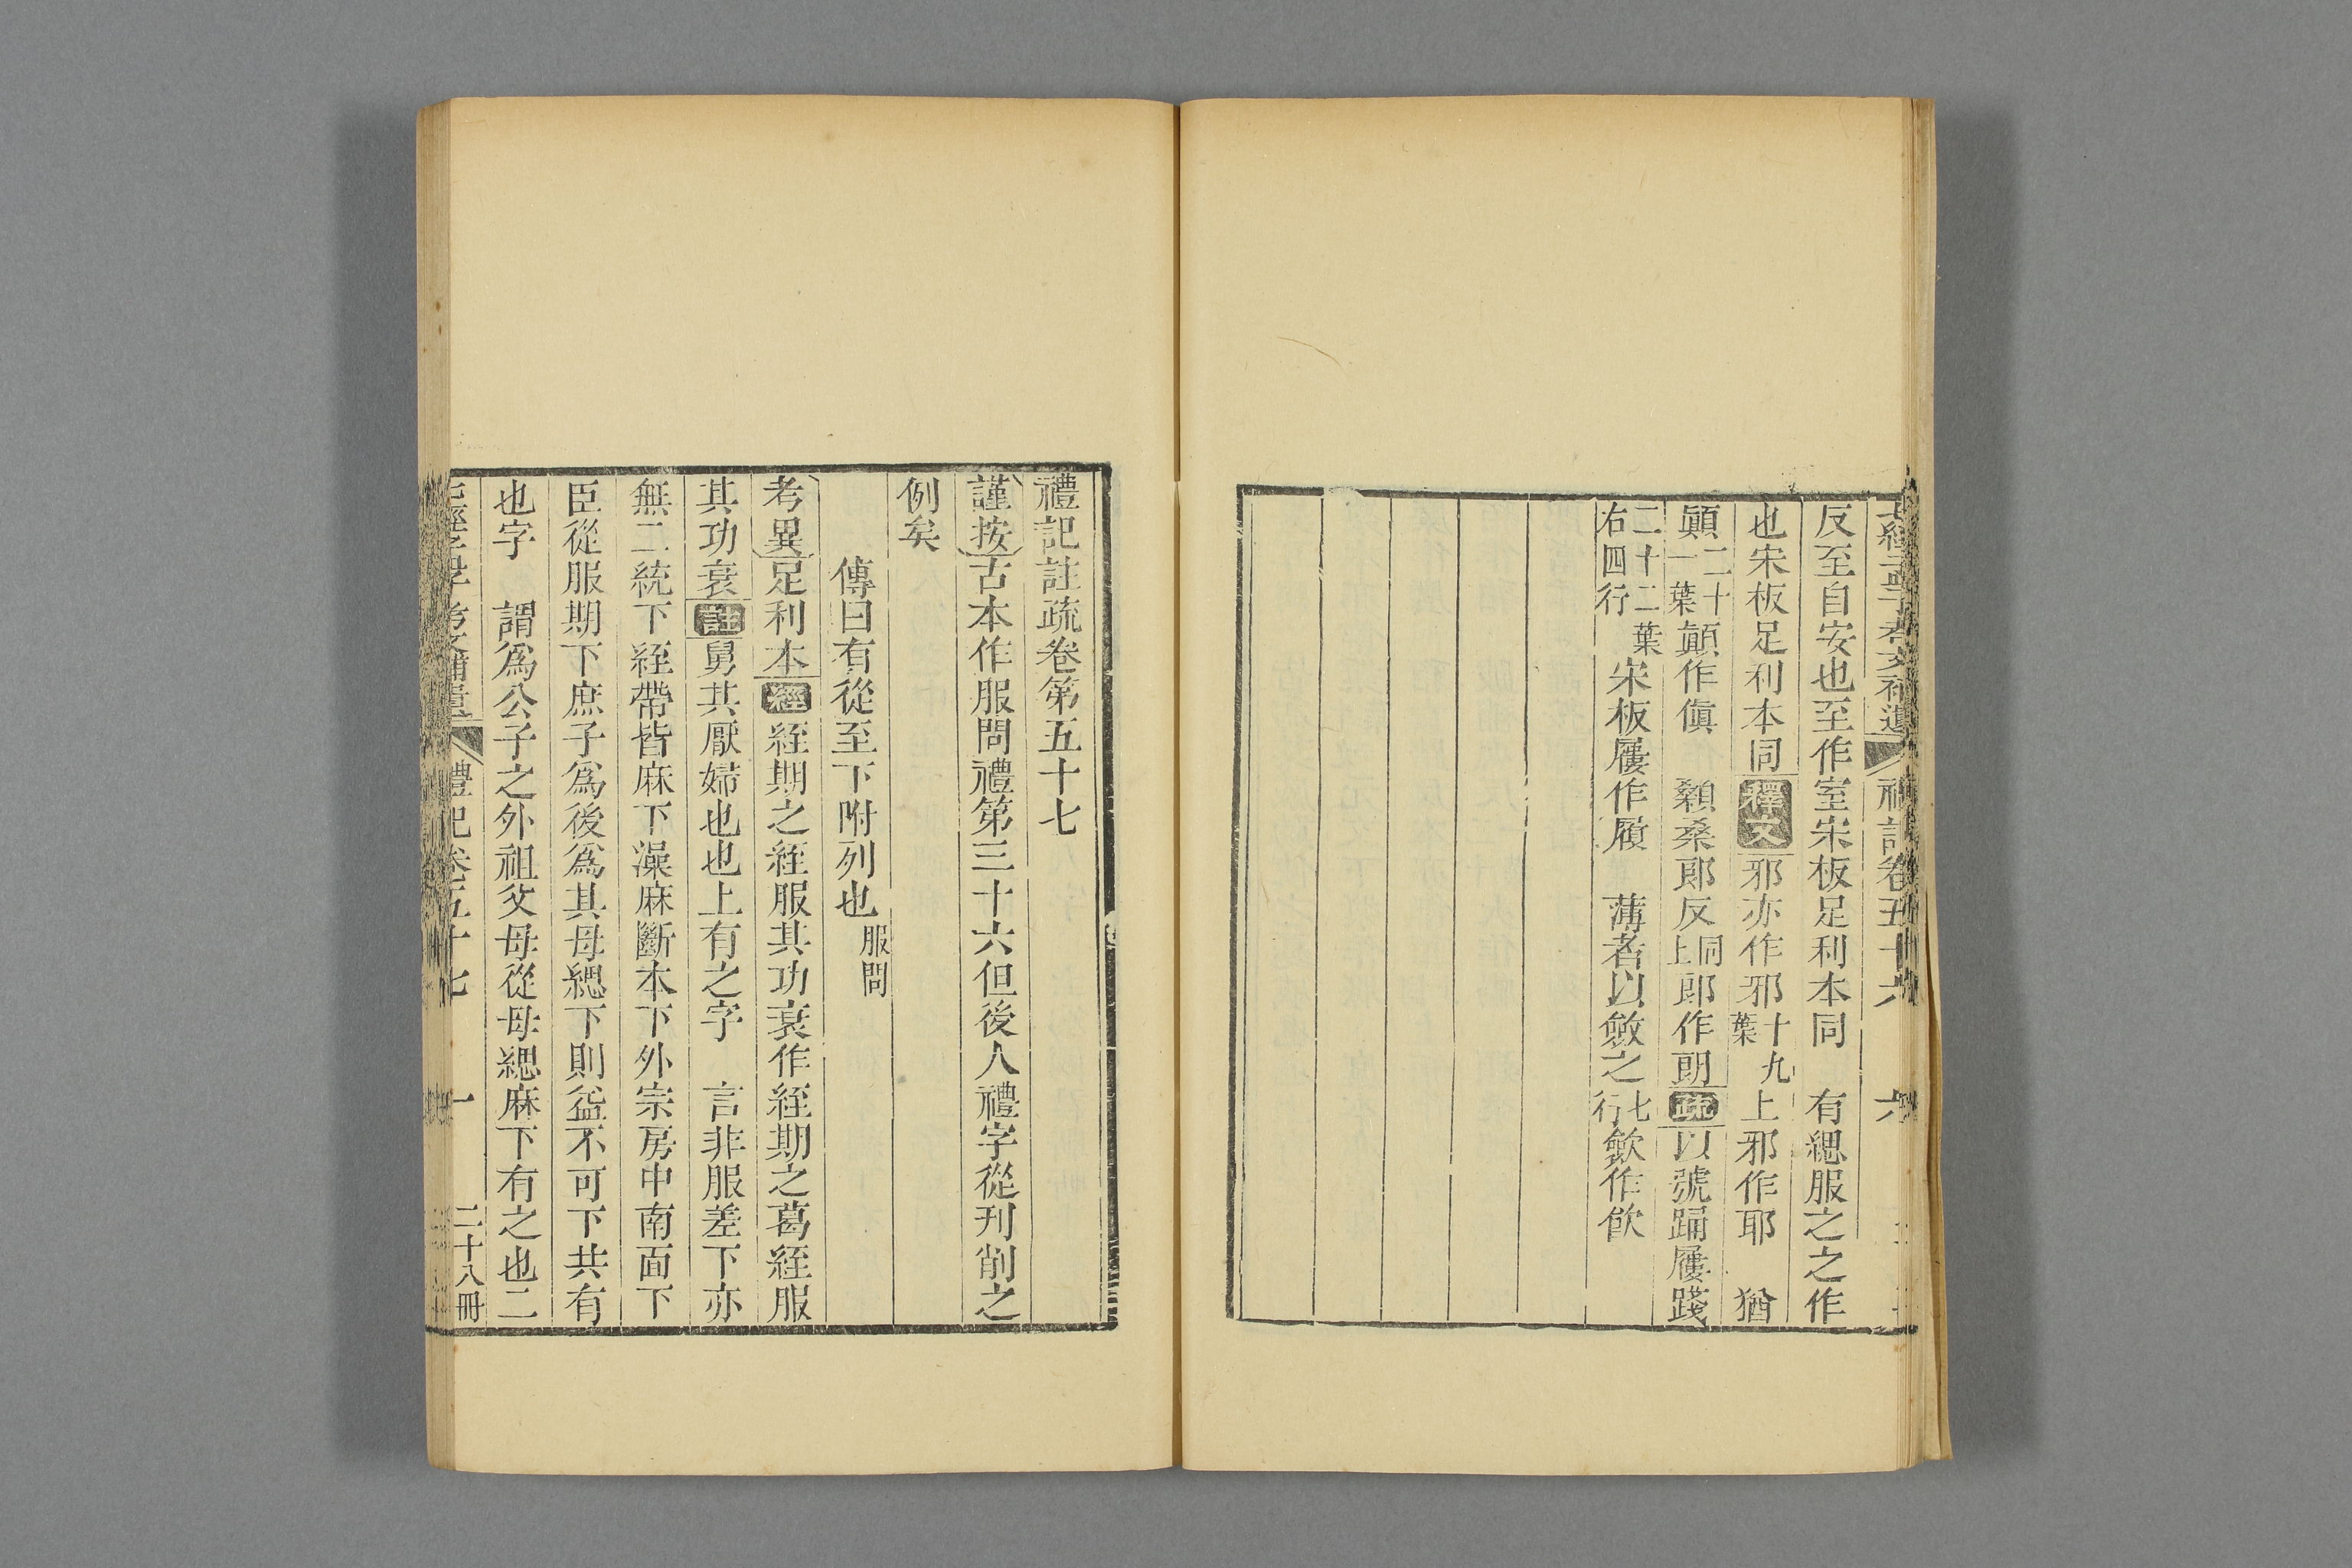 七經孟子考文補遺 禮記卷五十六 六
反至自安也至作室宋板足利本同　有緦服之之作
也宋板足利本同釋文邪亦作邪十九葉上邪作耶　猶
顚二十一葉顚作傎　顙桑郎反同上郎作朗疏以號踊屨踐
二十二葉右四行宋板屨作履　薄者以斂之七行斂作飮
禮記註疏卷第五十七
謹按古本作服問禮第三十六但後人禮字從刊削之
例矣
傳曰有從至下附列也服問
考異足利本經絰期之絰服其功衰作絰期之葛絰服
其功衰註舅其厭婦也也上有之字　言非服差下亦
無二統下絰帶皆麻下澡麻斷本下外宗房中南面下
臣從服期下庶子爲後爲其母緦下則益不可下共有
也字　謂爲公子之外祖父母從母緦麻下有之也二
禮記卷五十七 一 二十八冊